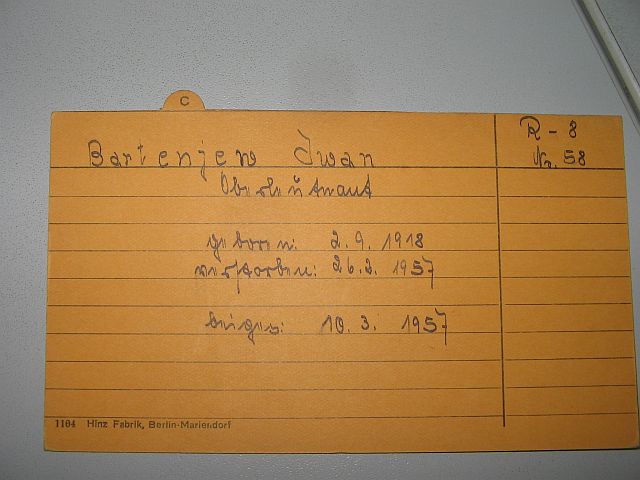 C
R - 8
Bartenjew Iwan
Nr. 58
Oberleutnant
geboren: 2. 9. 1918
verstorben: 26. 2. 1957
beiges: 10. 3. 1957
1104 Hinz Fabrik, Berlin-Mariendorf